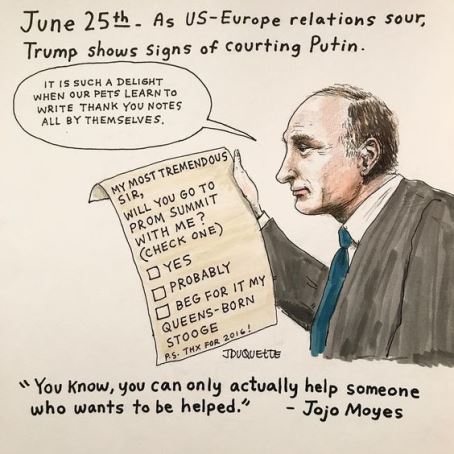 June 25th - As US-Europe relations sour,
Trump shows signs of courting Putin.
IT IS SUCH A DELIGHT
WHEN OUR PETS LEARN TO
WRITE THANK YOU NOTES
ALL BY THEMSELVES.
MY MOST TREMENDOUS
SIR,
WILL YOU GO TO
PROM SUMMIT
WITH ME?
(CHECK ONE)
YES
PROBABLY
BEG FOR IT MY
QUEENS-BORN
STOOGE
P.S. THX FOR 2016!
JDUQUETTE
"You know, you can only actually help someone
who wants to be helped." - Jojo Moyes